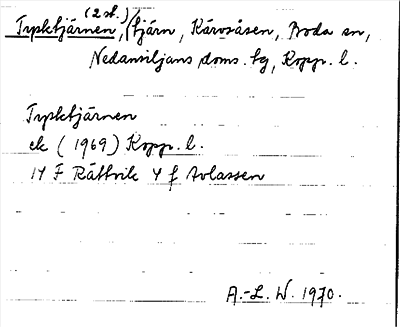 (2 st.)
Tysktjärnen, tjärn, Kårvsåsen, Boda sn,
Nedansiljans doms. tg, Kopp. l.
Tysktjärnen
ek (1969) Kopp. l.
14 F Rättvik 4 f Avlassen
A.-L. W. 1970.